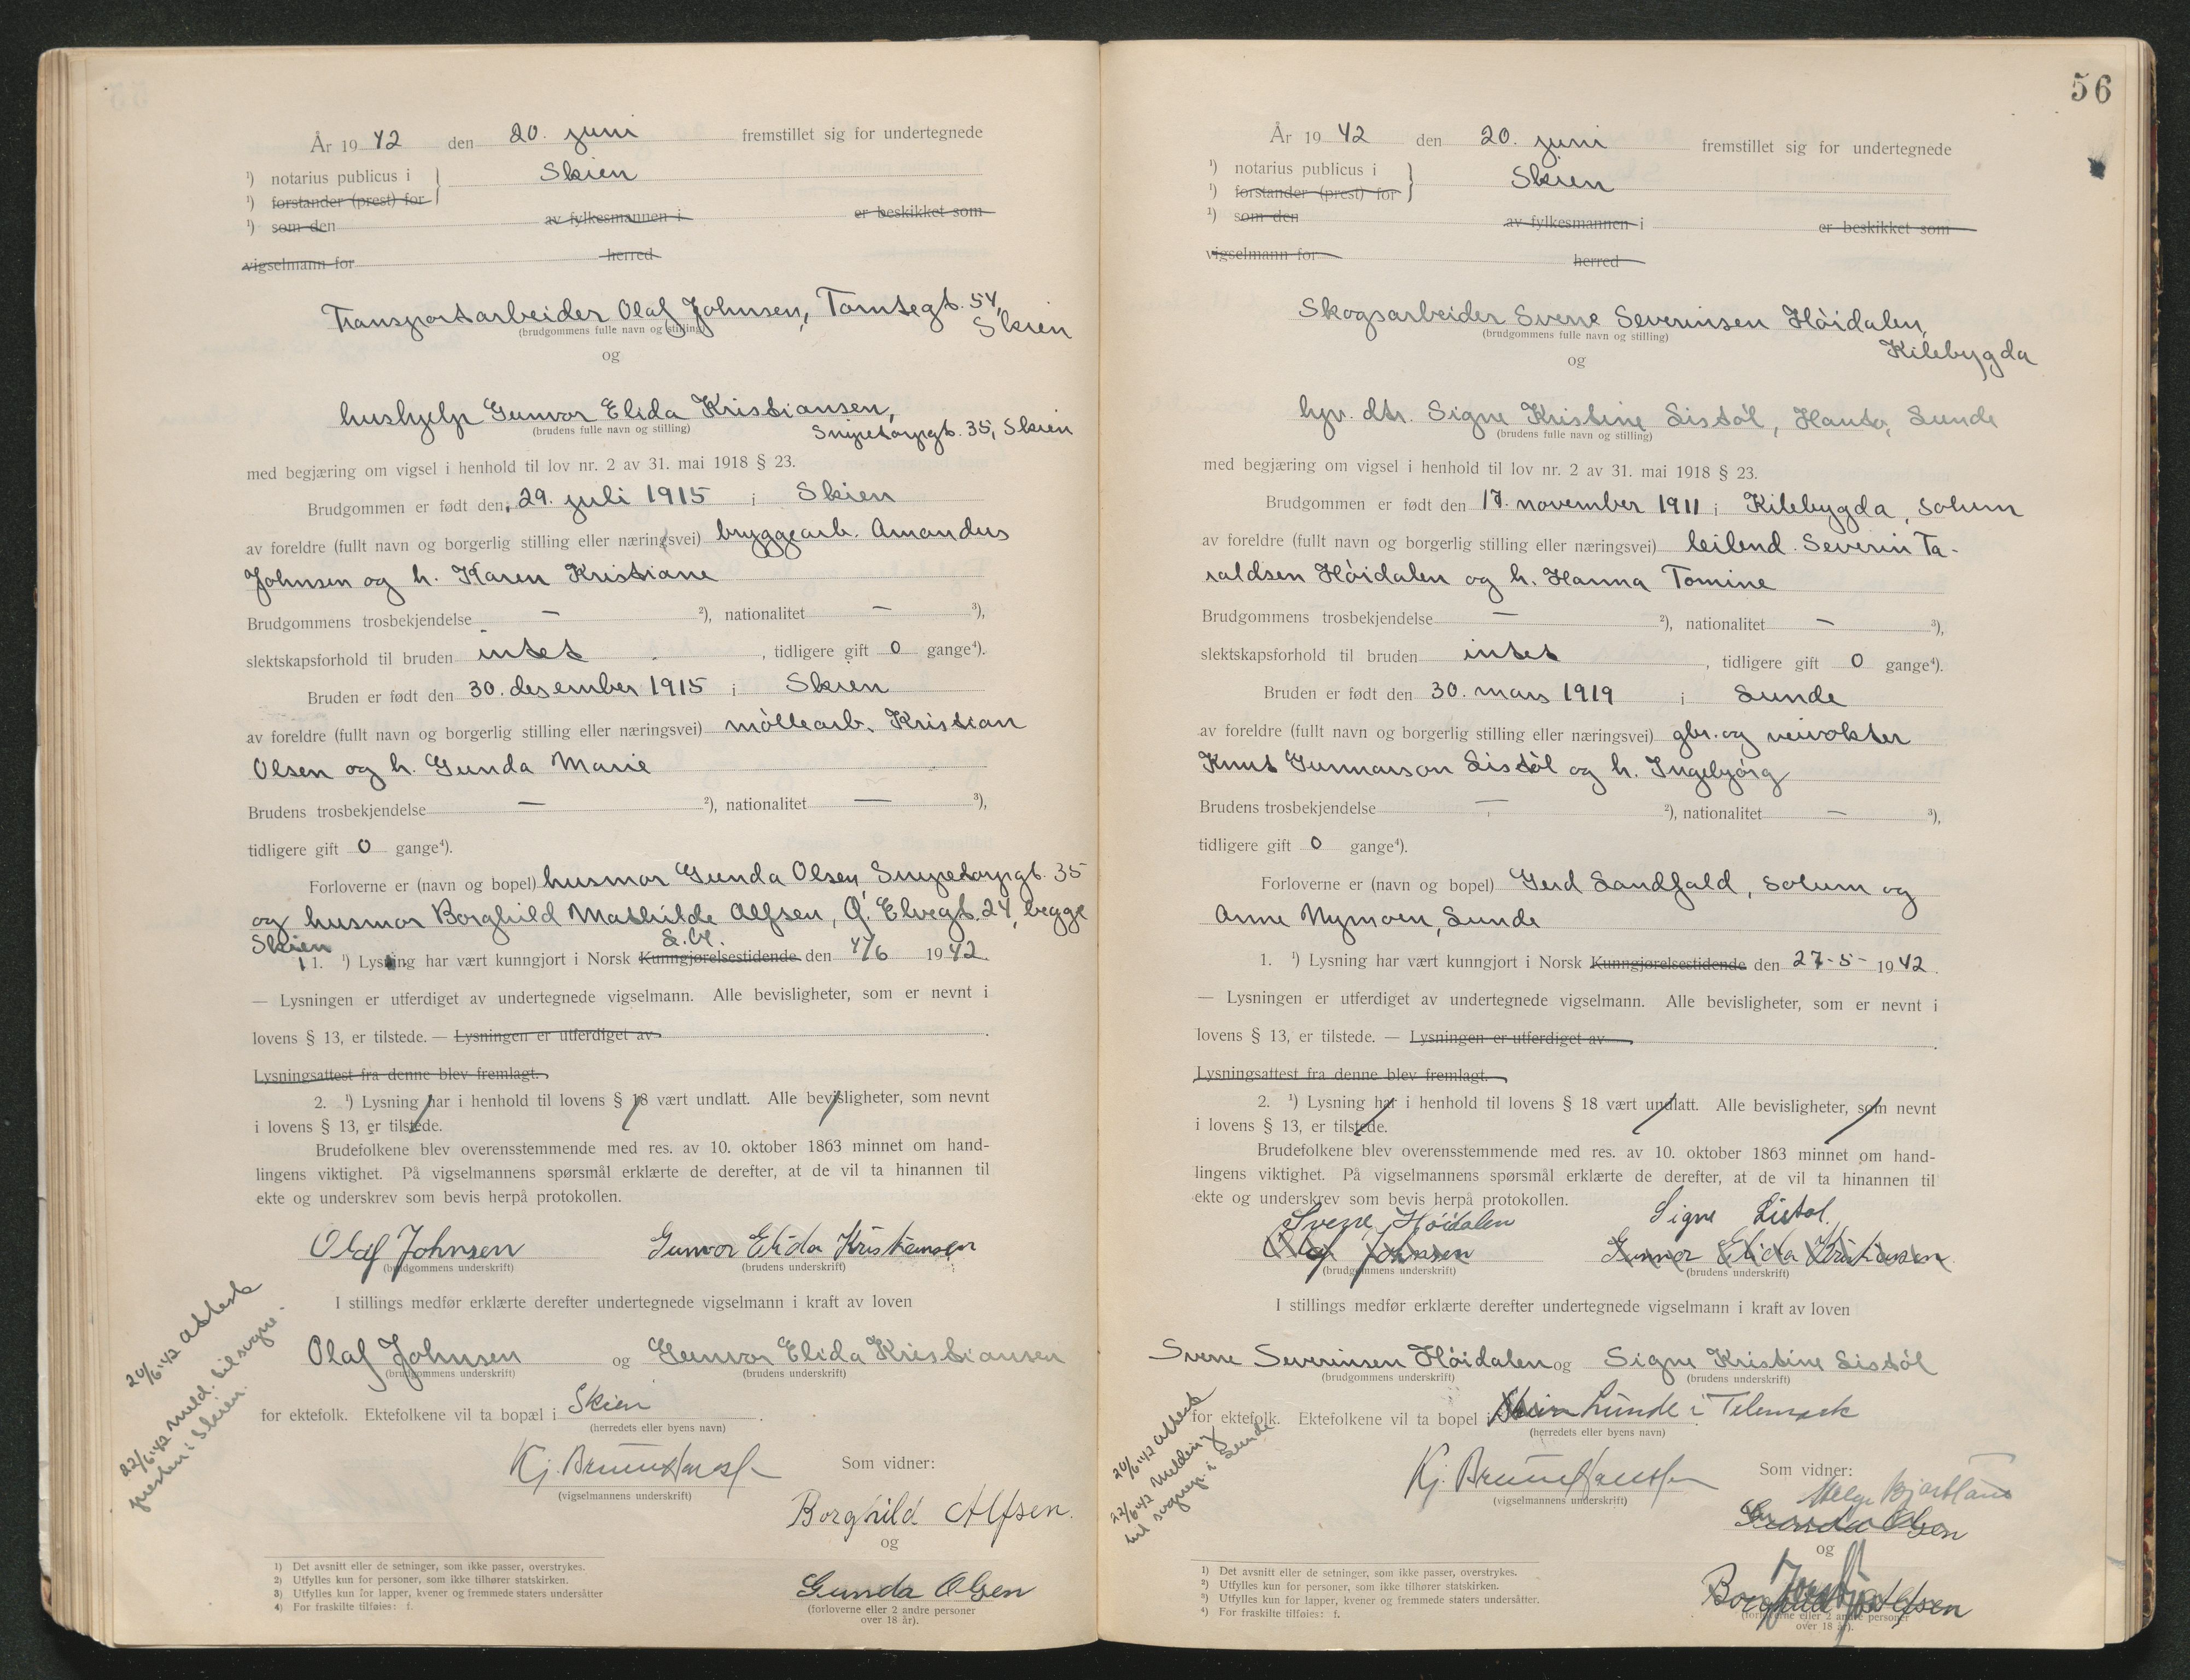 År 1942 den 20. juni fremstillet sig for undertegnede
¹) notarius publicus i } Skien
¹) forstander (prest) for
¹) som den av fylkesmannen i er beskikket som
vigselmann for herred
Transportarbeider Olaf Johnsen, Tomtegt. 54,
Skien
(brudgommens fulle navn og stilling)
og
hushjelp Gunvor Elida Kristiansen,
Snipetorpgt. 35, Skien
(brudens fulle navn og stilling)
med begjæring om vigsel i henhold til lov nr. 2 av 31. mai 1918 § 23.
Brudgommen er født den 29. juli 1915 i Skien
av foreldre (fullt navn og borgerlig stilling eller næringsvei) bryggearb. Amandus
Johnsen og h. Karen Kristiane
Brudgommens trosbekjendelse — ²), nationalitet — ³),
slektskapsforhold til bruden intet , tidligere gift 0 gange⁴).
Bruden er født den 30. desember 1915 i Skien
av foreldre (fullt navn og borgerlig stilling eller næringsvei) möllearb. Kristian
Olsen og h. Gunda Marie
Brudens trosbekjendelse — ²), nationalitet — ³),
tidligere gift 0 gange⁴).
Forloverne er (navn og bopel) husmor Gunda Olsen, Snipetorpgt. 35
og husmor Borghild Mathilde Alfsen, Ø. Elvegt. 24, begge
Skien
1. ¹) Lysning har vært kunngjort i Norsk Kunngjørelsestidende den 4/6 1942
— Lysningen er utferdiget av undertegnede vigselmann. Alle bevisligheter, som er nevnt i
lovens § 13, er tilstede. — Lysningen er utferdiget av .
Lysningsattest fra denne blev fremlagt.
2. ¹) Lysning har i henhold til lovens § 18 vært undlatt. Alle bevisligheter, som nevnt
i lovens § 13, er tilstede.
Brudefolkene blev overensstemmende med res. av 10. oktober 1863 minnet om hand-
lingens viktighet. På vigselmannens spørsmål erklærte de derefter, at de vil ta hinannen til
ekte og underskrev som bevis herpå protokollen.
Olaf Johnsen Gunvor Elida Kristiansen
(brudgommens underskrift) (brudens underskrift)
I stillings medfør erklærte derefter undertegnede vigselmann i kraft av loven
Olaf Johnsen og Gunvor Elida Kristiansen
(brudgommens underskrift) (brudens underskrift)
for ektefolk. Ektefolkene vil ta bopæl i Skien .
(herredets eller byens navn)
20/6'42 attest
22/6'42 meld. til sogne-
presten i Skien.
Som vidner:
(vigselmannens underskrift)
Borghild Alfsen.
og
Gunda Olsen
(forloverne eller 2 andre personer
over 18 år).
1) Det avsnitt eller de setninger, som ikke passer, overstrykes.
2) Utfylles kun for personer, som ikke tilhører statskirken.
3) Utfylles kun for lapper, kvener og fremmede staters undersåtter
4) For fraskilte tilføies: f.
56
År 1942 den 20. juni fremstillet sig for undertegnede
¹) notarius publicus i } Skien
¹) forstander (prest) for
¹) som den av fylkesmannen i er beskikket som
vigselmann for herred
Skogsarbeider Sverre Severinsen Höidalen,
Kilebygda
(brudgommens fulle navn og stilling)
og
hjv. dtr. Signe Kristine Listöl, Hauto, Lunde
(brudens fulle navn og stilling)
med begjæring om vigsel i henhold til lov nr. 2 av 31. mai 1918 § 23.
Brudgommen er født den 17. november 1911 i Kilebygda, Solum
av foreldre (fullt navn og borgerlig stilling eller næringsvei) leilend. Severin Ta-
raldsen Höidalen og h. Hanna Tomine
Brudgommens trosbekjendelse — ²), nationalitet — ³),
slektskapsforhold til bruden intet , tidligere gift 0 gange⁴).
Bruden er født den 30. mars 1919 i Lunde
av foreldre (fullt navn og borgerlig stilling eller næringsvei) gbr. og veivokter
Knut Gunnarson Listöl og h. Ingebjörg
Brudens trosbekjendelse — ²), nationalitet — ³),
tidligere gift 0 gange⁴).
Forloverne er (navn og bopel) Gerd Sandfald, Solum og
Anne Nymoen, Lunde
1. ¹) Lysning har vært kunngjort i Norsk Kunngjørelsestidende den 27-5- 1942.
— Lysningen er utferdiget av undertegnede vigselmann. Alle bevisligheter, som er nevnt i
lovens § 13, er tilstede. — Lysningen er utferdiget av .
Lysningsattest fra denne blev fremlagt.
2. ¹) Lysning har i henhold til lovens § 18 vært undlatt. Alle bevisligheter, som nevnt
i lovens § 13, er tilstede.
Brudefolkene blev overensstemmende med res. av 10. oktober 1863 minnet om hand-
lingens viktighet. På vigselmannens spørsmål erklærte de derefter, at de vil ta hinannen til
ekte og underskrev som bevis herpå protokollen.
Sverre Höidalen Signe Listøl.
Olaf Johnsen Gunvor Elida Kristiansen
(brudgommens underskrift) (brudens underskrift)
I stillings medfør erklærte derefter undertegnede vigselmann i kraft av loven
Sverre Severinsen Höidalen og Signe Kristine Listöl
(brudgommens underskrift) (brudens underskrift)
for ektefolk. Ektefolkene vil ta bopel i Skien Lunde i Telemark
(herredets eller byens navn)
20/6'42 attest
22/6'42 melding
til sognepr. i Lunde
Som vidner:
(vigselmannens underskrift)
Gunda Olsen
og
Borghild Alfsen
(forloverne eller 2 andre personer
over 18 år).
¹) Det avsnitt eller de setninger, som ikke passer, overstrykes.
²) Utfylles kun for personer, som ikke tilhører statskirken.
³) Utfylles kun for lapper, kvener og fremmede staters undersåtter.
⁴) For fraskilte tilføies: f.